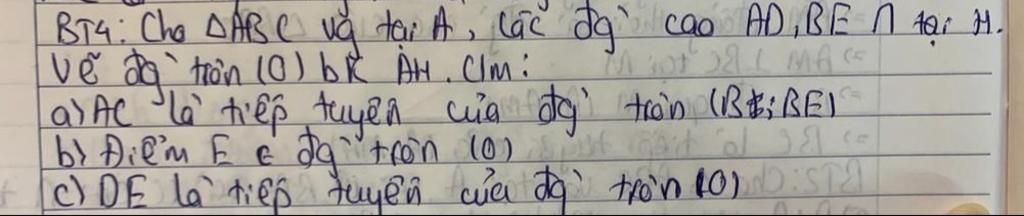 BT4: Cho △ABC vg tại A, các đg` cao AD, BE ∩ tại H.
Vẽ đg` tròn (O) bk AH. C/m:
a) AC là tiếp tuyến của đg` tròn (B; BE)
b) Điểm E ∈ đg` tròn (O)
c) DE là tiếp tuyến của đg` tròn (O)